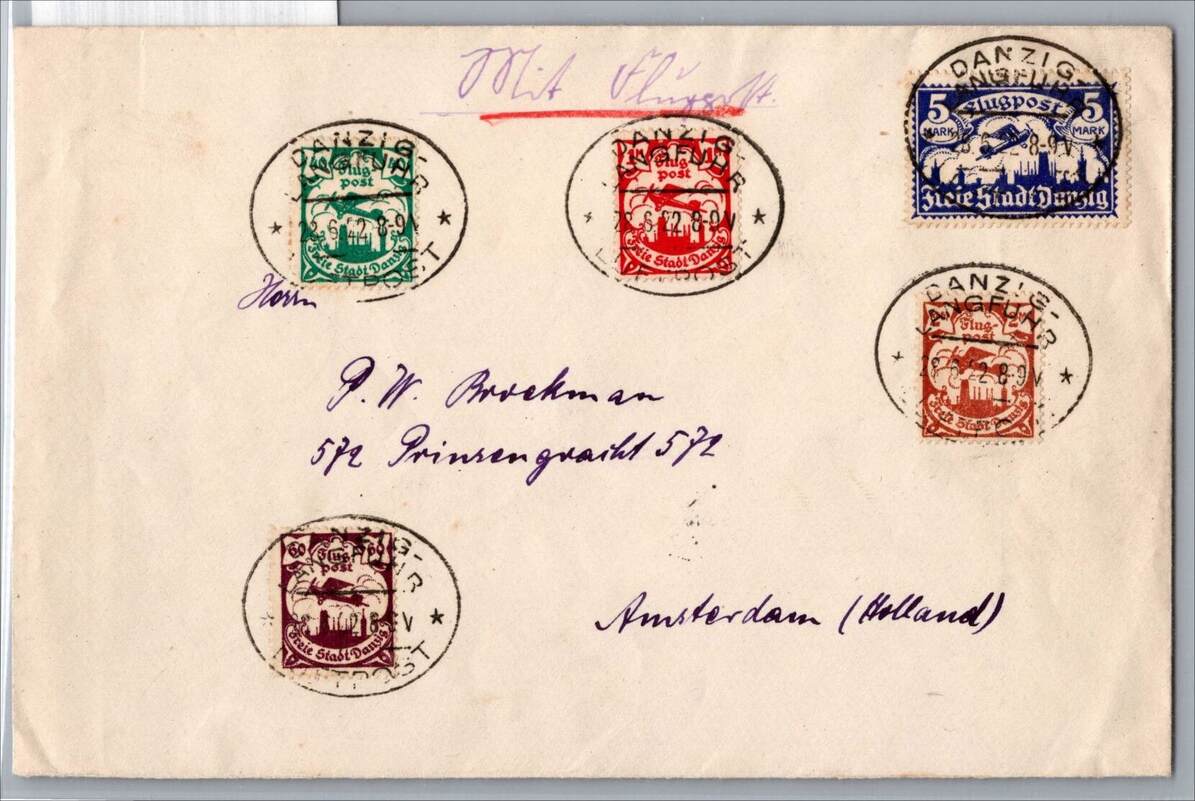 Mit Flugpost.
DANZIG-
LANGFUHR
5 Flugpost 5
MARK MARK
28.6.22 8-9V
Freie Stadt Danzig
DANZIG-
LANGFUHR
40 40
Flug
post
28.6.22 8-9V
Freie Stadt Danzig
LUFTPOST
DANZIG-
LANGFUHR
Flug
post
28.6.22 8-9V
Freie Stadt Danzig
LUFTPOST
Herrn
DANZIG-
LANGFUHR
Flug-
post
28.6.22 8-9V
Freie Stadt Danzig
P. W. Brockman
572 Prinsengracht 572
DANZIG-
LANGFUHR
60 60
Flug
post
8-9V
Freie Stadt Danzig
LUFTPOST
Amsterdam (Holland)